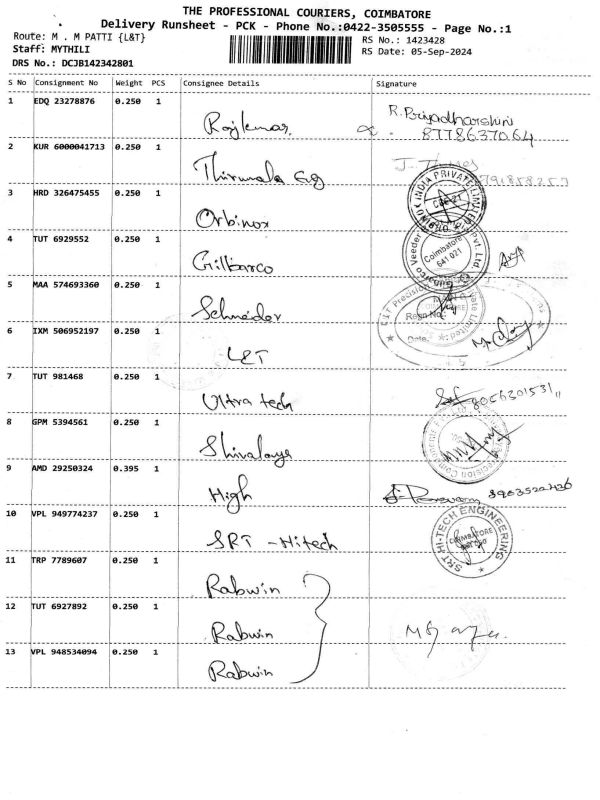 THE PROFESSIONAL COURIERS, COIMBATORE
Delivery Runsheet - PCK - Phone No.:0422-3505555 - Page No.:1
Route: M . M PATTI {L&T}
RS No.: 1423428
Staff: MYTHILI
RS Date: 05-Sep-2024
DRS No.: DCJB142342801
S No Consignment No Weight PCS Consignee Details Signature
1 EDQ 23278876 0.250 1 Rajkumar R. Priyadharshini
8778637064
2 KUR 6000041713 0.250 1 Thirumala Egg
3 HRD 326475455 0.250 1 Orbinox
INDIA PRIVATE LIMITED
4 TUT 6929552 0.250 1 Gilbarco
Gilbarco Veeder Pvt. Ltd
Coimbatore
641 021
5 MAA 574693360 0.250 1 Schneider
CIT Precision
Private Limited
Regn No.
Date:
6 IXM 506952197 0.250 1 L&T
7 TUT 981468 0.250 1 Ultra tech 8056301531
8 GPM 5394561 0.250 1 Shivalaya
Precision
9 AMD 29250324 0.395 1 High
10 VPL 949774237 0.250 1 SRT - Hitech
SRT HI-TECH ENGINEERING
COIMBATORE
11 TRP 7789607 0.250 1 Rabwin
12 TUT 6927892 0.250 1 Rabwin
13 VPL 948534094 0.250 1 Rabwin